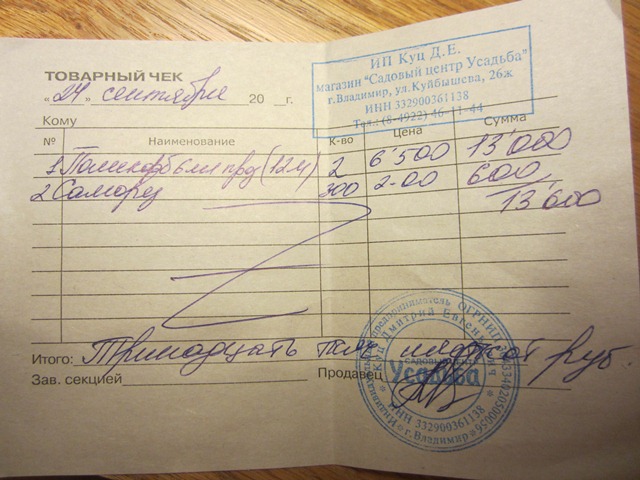 ИП Куц Д.Е.
магазин "Садовый центр Усадьба"
г.Владимир, ул.Куйбышева, 26ж
ИНН 332900361138
Тел.: (8-4922) 46-11-44
ТОВАРНЫЙ ЧЕК
«24» сентября 20 г.
Кому
№ Наименование К-во Цена Сумма
1 Поликарб 6мм прозр (12м) 2 6'500 13'000
2 Саморез 300 2-00 600
13'600
Итого: Тринадцать тыс шестьсот руб.
Зав. секцией Продавец
Индивидуальный предприниматель ОГРНИП
Куц Дмитрий Евгеньевич
САДОВЫЙ ЦЕНТР
Усадьба
ИНН 332900361138
г.Владимир